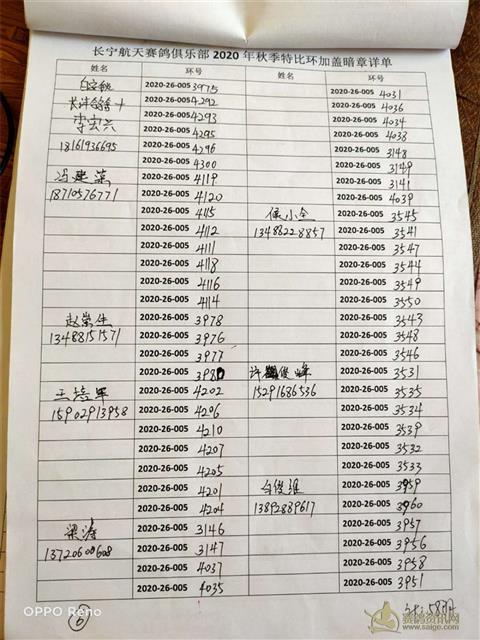 长宁航天赛鸽俱乐部 2020 年秋季特比环加盖暗章详单
姓名 环号 姓名 环号
2020-26-005 3975 2020-26-005 4031
2020-26-005 4292 2020-26-005 4036
李宏兴 2020-26-005 4293 2020-26-005 4034
2020-26-005 4295 2020-26-005 4038
18161936695 2020-26-005 4296 2020-26-005 3148
2020-26-005 4300 2020-26-005 3149
冯建 2020-26-005 4119 2020-26-005 3141
18710576771 2020-26-005 4120 2020-26-005 4039
2020-26-005 4115 侯小全 2020-26-005 3545
2020-26-005 4112 13488228857 2020-26-005 3541
2020-26-005 4111 2020-26-005 3547
2020-26-005 4118 2020-26-005 3544
2020-26-005 4116 2020-26-005 3549
2020-26-005 4114 2020-26-005 3550
赵崇生 2020-26-005 3978 2020-26-005 3543
13488151571 2020-26-005 3976 2020-26-005 3548
2020-26-005 3977 2020-26-005 3546
2020-26-005 3980 许 俊峰 2020-26-005 3531
王 军 2020-26-005 4202 15291686536 2020-26-005 3535
15902913958 2020-26-005 4206 2020-26-005 3534
2020-26-005 4210 2020-26-005 3539
2020-26-005 4207 2020-26-005 3532
2020-26-005 4205 2020-26-005 3533
2020-26-005 4201 白俊维 2020-26-005 3959
2020-26-005 4204 13892889617 2020-26-005 3960
梁涛 2020-26-005 3146 2020-26-005 3957
13720600608 2020-26-005 3147 2020-26-005 3956
2020-26-005 4037 2020-26-005 3958
2020-26-005 4035 2020-26-005 3951
6
OPPO Reno
赛鸽资讯网
www.saige.com